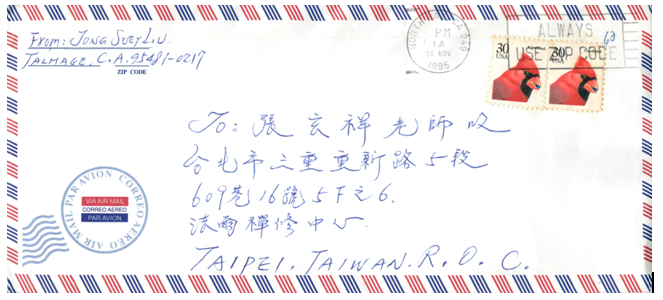 From: JONG SUEY LIU
TALMAGE, C.A. 95481-0217
ZIP CODE
PM
NOV
1995
ALWAYS
USE ZIP CODE
30
USA
30
USA
To: 張玄祥老師收
台北市三重重新路5段
609巷16號5F之6.
法爾禪修中心
TAIPEI. TAIWAN. R. O. C.
PAR AVION CORREO AEREO AIR MAIL
VIA AIR MAIL
CORREO AEREO
PAR AVION